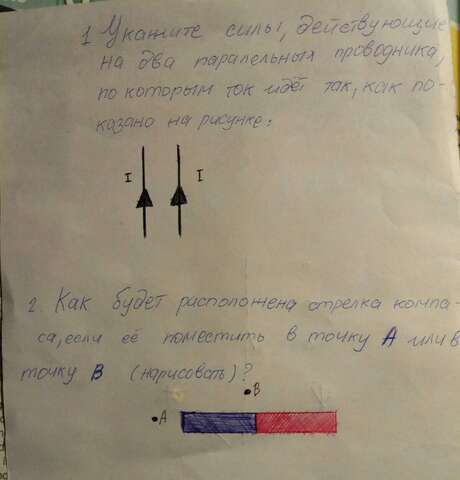 1 Укажите силы, действующие
на два паралельных проводника,
по которым ток идёт так, как по-
казано на рисунке:
I I
2. Как будет расположена стрелка компа-
са, если её поместить в точку А или в
точку В (нарисовать)?
В
А